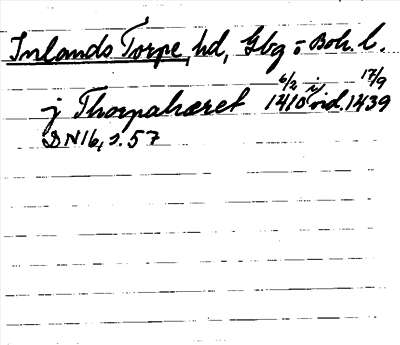 Inlands Torpe, hd, Gbg o Boh. l.
j Thorpahæret 1410 6/2 i vid. 1439 17/9
DN 16, s. 57